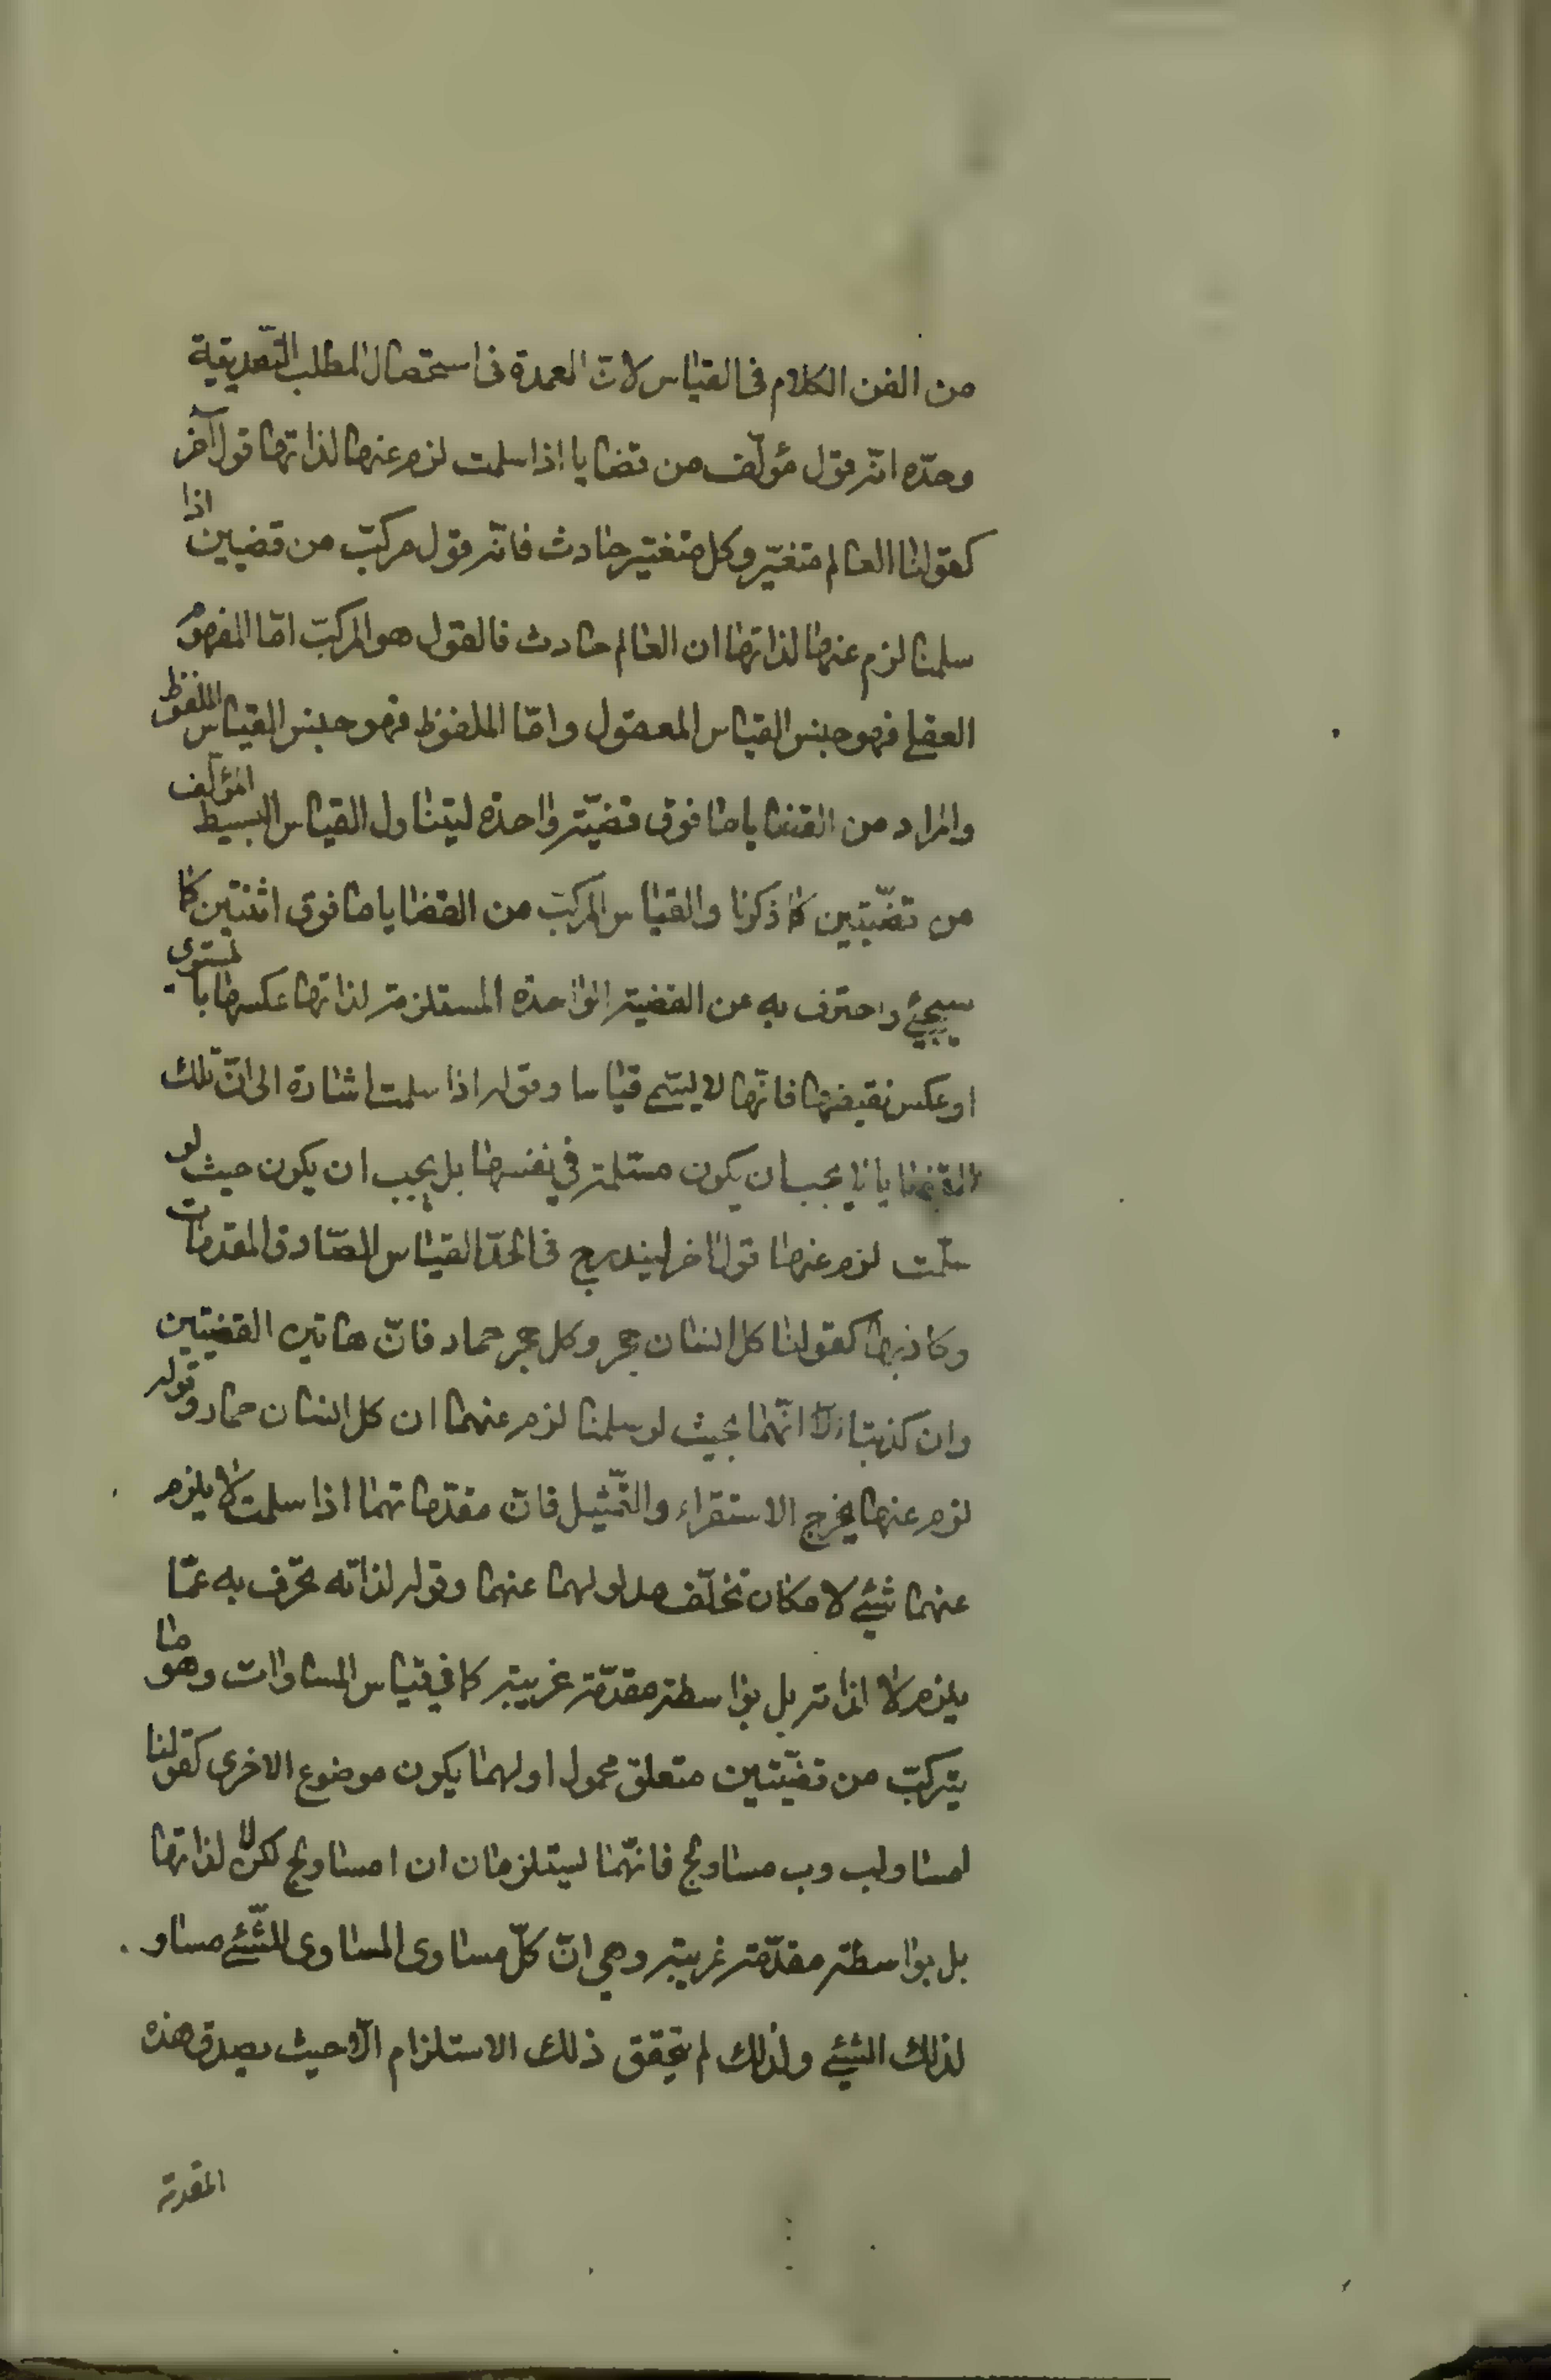 من الفن الكلام فى القياس لانّ العمدة فى استحصال المطلب التّصديقية
وحدّه انّه قول مؤلّف من قضايا اذا سلمت لزم عنها لذاتها قول آخر
كقولنا العالم متغيّر وكل متغيّر حادث فانّه قول مركّب من قضيين اذا
سلمنا لزم عنها لذاتها ان العالم حادث فالقول هو المركّب امّا المفهوم
العقلي فهو جنس القياس المعقول وامّا الملفوظ فهو جنس القياس الملفوظ
والمراد من القضايا ما فوق قضيّة واحدة ليتناول القياس البسيط المؤلّف
من قضّيتين كما ذكرنا والقياس المركّب من القضايا ما فوق اثنتين كما
سيجئ واحترف به عن القضية الواحدة المستلزمة لذاتها عكسها بالمستوى
او عكس نقيضها فانّها لا يسمّى قياسا وقوله اذا سلمت اشارة الى انّ تلك
القضايا لا يجب ان يكون مسلّمة في نفسها بل يجب ان يكون حيث لو
سلّمت لزم عنها قول اخر ليندرج فى الحدّ القياس الصّادق المقدمات
وكاذبها كقولنا كل انسان حجر وكل حجر جماد فانّ هاتين القضيتين
وان كذبتا الّا انّهما بحيث لو سلمنا لزم عنهما ان كل انسان جماد وقوله
لزم عنها يخرج الاستقراء والتّمثيل فانّ مقدّماتهما اذا سلمت لا يلزم
عنهما شئ لامكان تخلّف مدلولهما عنهما وقوله لذاته يحترف به عمّا
يلزم لا لذاته بل بواسطة مقدّمة غريبة كما في قياس المساوات وهو ما
يتركّب من قضيّتين متعلق محمول اولهما يكون موضوع الاخرى كقولنا
ا مساو لب وب مساو لج فانّهما يستلزمان ان ا مساو لج لكن لا لذاتها
بل بواسطة مقدّمة غريبة وهي انّ كلّ مساوى المساوى للشّئ مساو
لذلك الشئ ولذلك لم يتحقق ذلك الاستلزام الّا حيث يصدق هذه
المقدمة